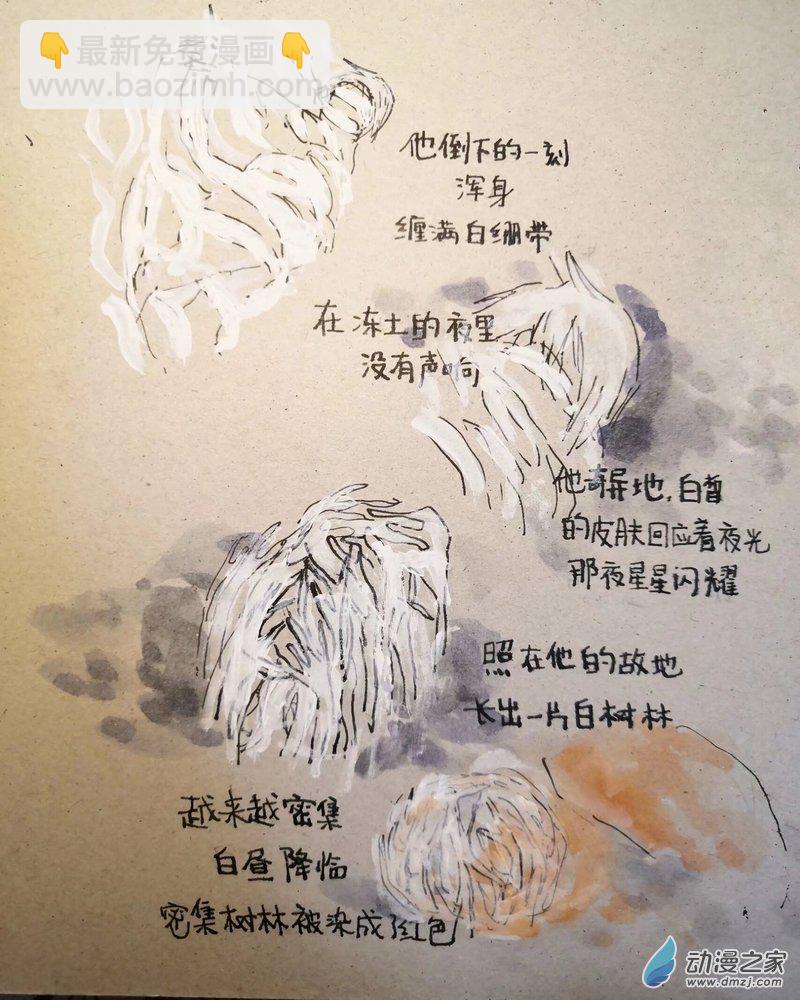 👇最新免费漫画👇
www.baozimh.com
他倒下的一刻
浑身
缠满白绷带
在冻土的夜里
没有声响
他奇异地,白皙
的皮肤回应着夜光
那夜星星闪耀
照在他的故地
长出一片白树林
越来越密集
白昼降临
密集树林被染成了红色
动漫之家
www.dmzj.com